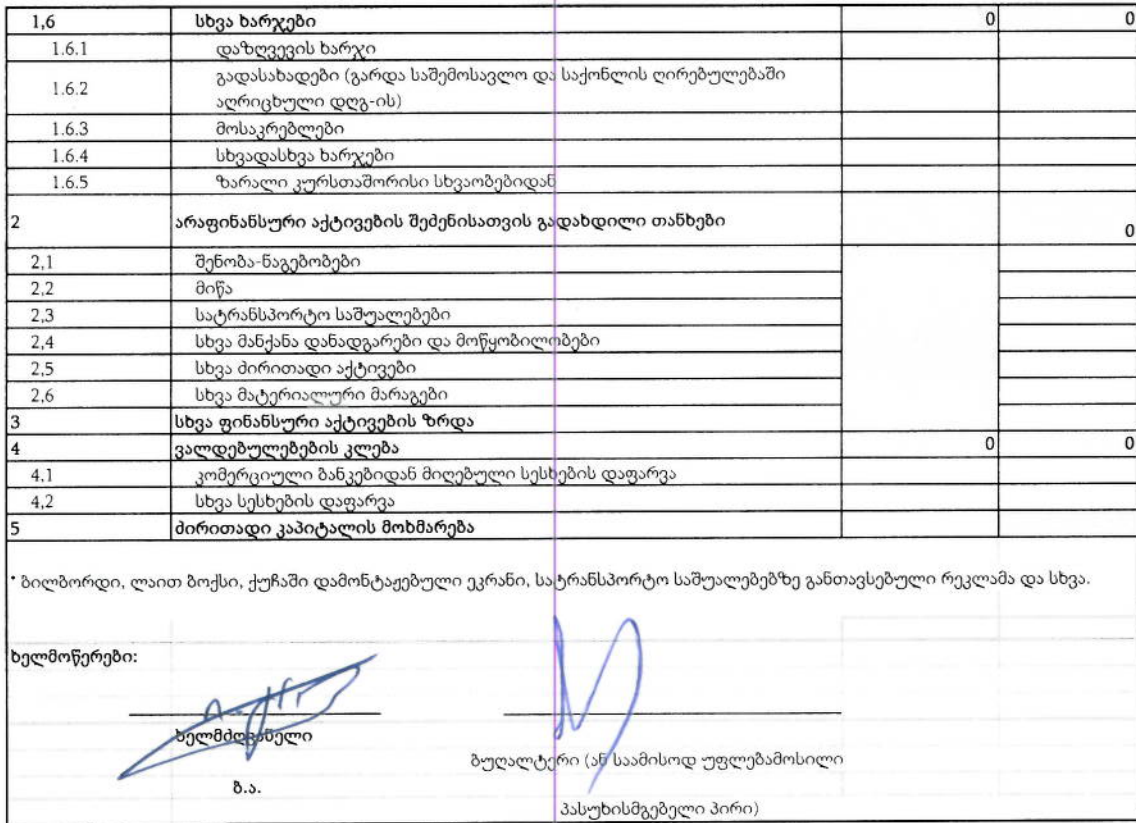 1,6 სხვა ხარჯები 0 0
1.6.1 დაზღვევის ხარჯი
1.6.2 გადასახადები (გარდა საშემოსავლო და საქონლის ღირებულებაში
აღრიცხული დღგ-ის)
1.6.3 მოსაკრებლები
1.6.4 სხვადასხვა ხარჯები
1.6.5 ზარალი კურსთაშორისი სხვაობებიდან
2 არაფინანსური აქტივების შეძენისათვის გადახდილი თანხები 0
2,1 შენობა-ნაგებობები
2,2 მიწა
2,3 სატრანსპორტო საშუალებები
2,4 სხვა მანქანა დანადგარები და მოწყობილობები
2,5 სხვა ძირითადი აქტივები
2,6 სხვა მატერიალური მარაგები
3 სხვა ფინანსური აქტივების ზრდა
4 ვალდებულებების კლება 0 0
4,1 კომერციული ბანკებიდან მიღებული სესხების დაფარვა
4,2 სხვა სესხების დაფარვა
5 ძირითადი კაპიტალის მოხმარება
* ბილბორდი, ლაით ბოქსი, ქუჩაში დამონტაჟებული ეკრანი, სატრანსპორტო საშუალებებზე განთავსებული რეკლამა და სხვა.
ხელმოწერები:
ხელმძღვანელი
ბუღალტერი (ან საამისოდ უფლებამოსილი
ბ.ა.
პასუხისმგებელი პირი)